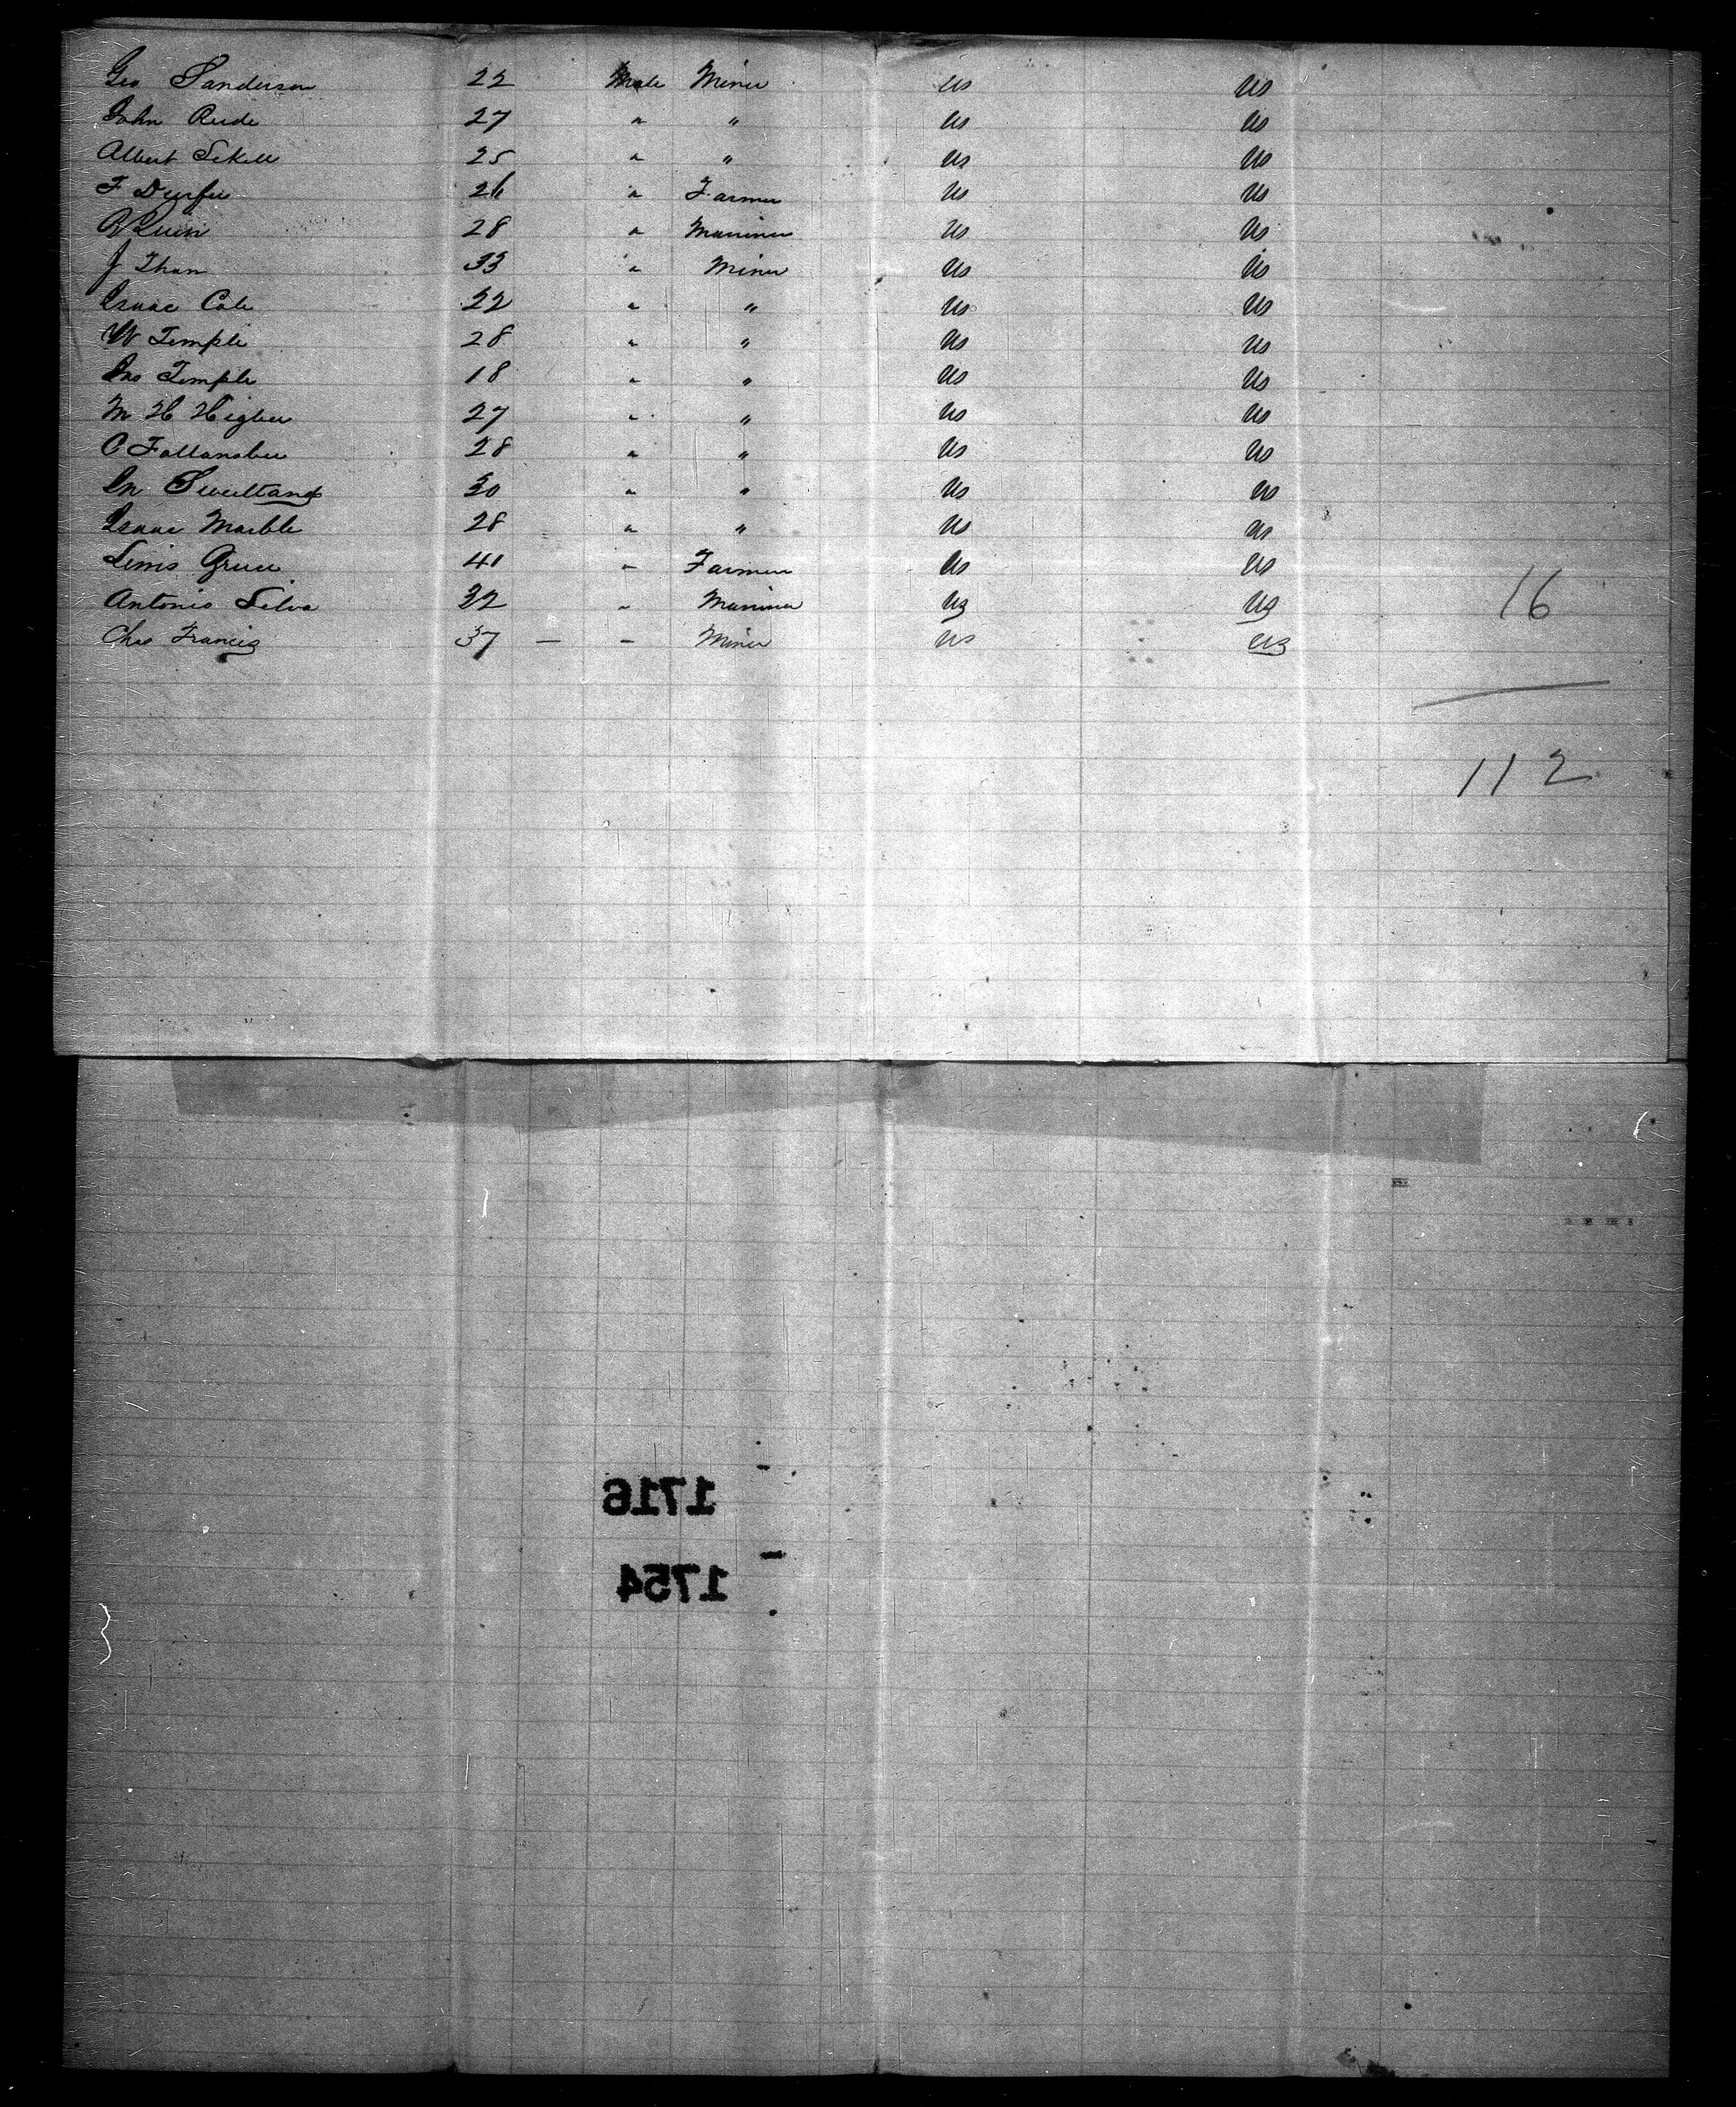 Geo Sanderson 22 Male Miner US US
John Rude 27 " " US US
Albert 25 " " US US
F Durfee 26 " Farmer US US
28 " Mariner US US
J Than 33 " Miner US US
Isaac Cole 22 " " US US
W Temple 28 " " US US
Jno Temple 18 " " US US
M H Higbee 27 " " US US
C Follansbee 28 " " US US
Jn Sweetland 30 " " US US
Isaac Marble 28 " " US US
Lewis Green 41 " Farmer US US
Antonio Silva 32 " Mariner US US
16
Chas Francis 37 — – Miner US US
112
1716
1754